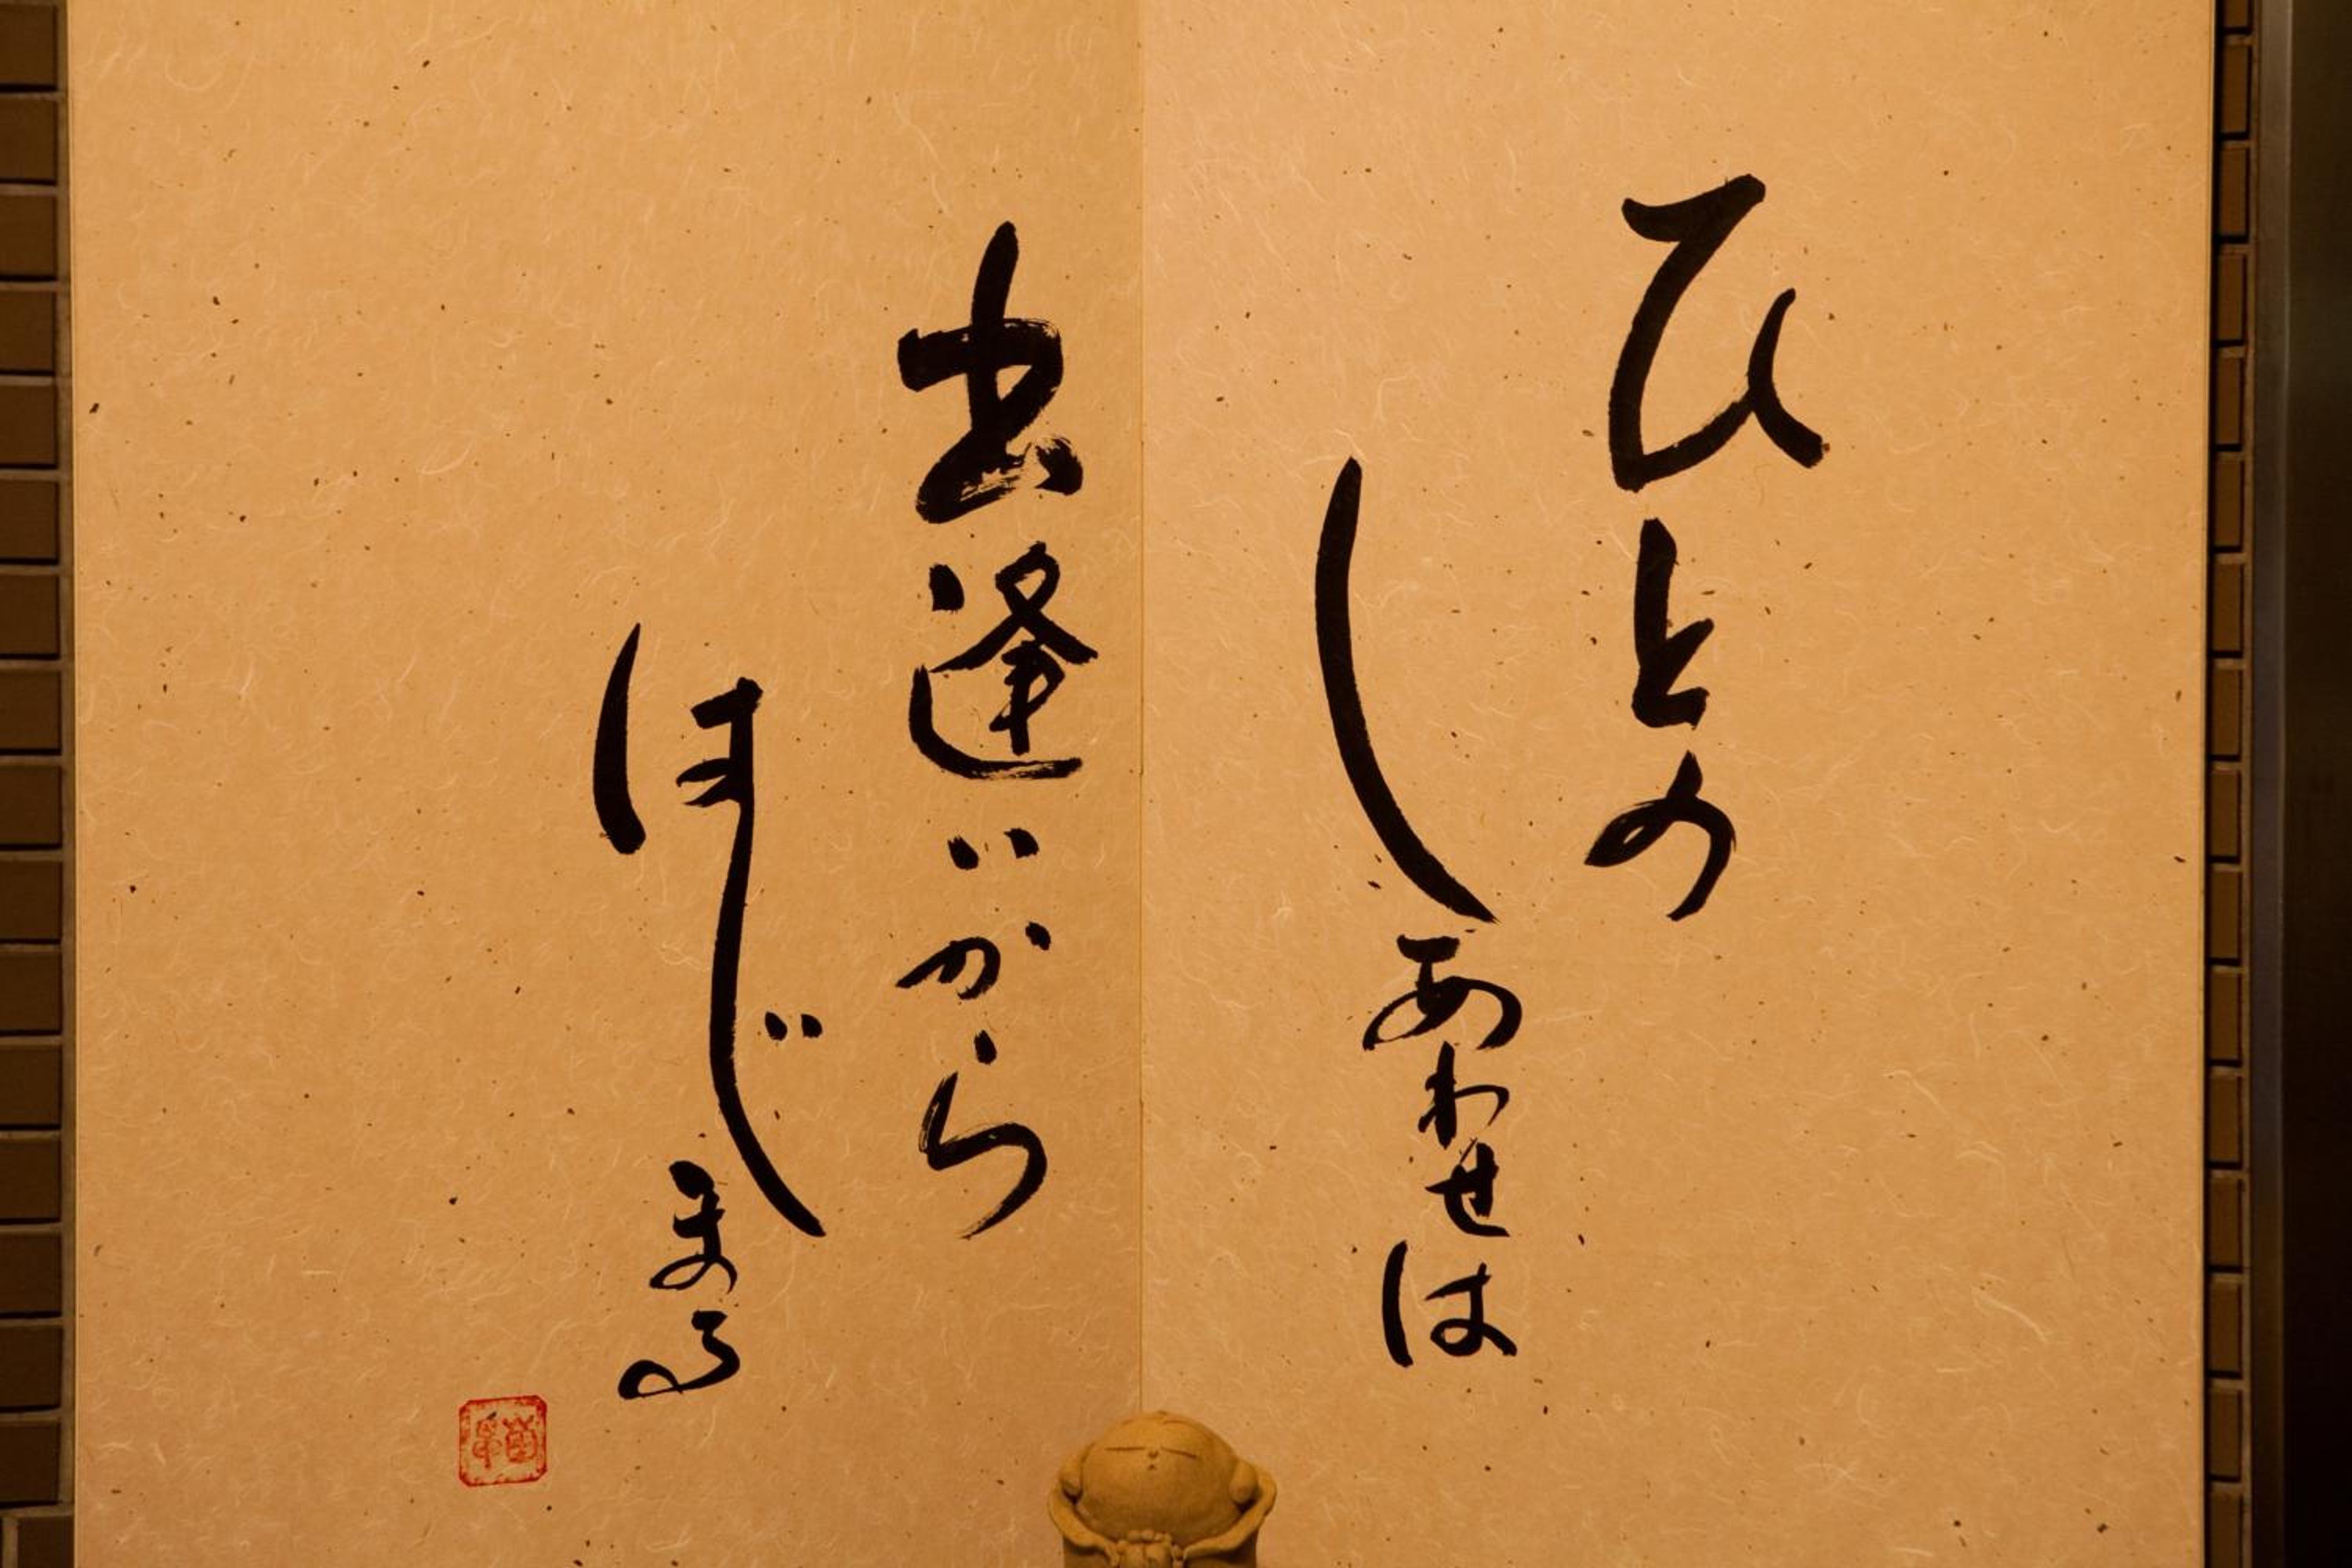 ひとの
しあわせは
出逢いから
はじまる